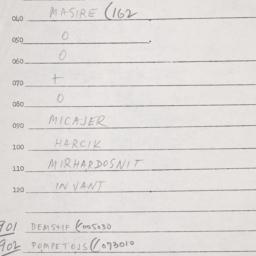 040 MASIRE (162
050 O
060 O
070 +
080 O
090 MICAJER
100 HARCIK
110 MIRHARDOSNIT
120 INVANT
901 DEMSTIF (005030
902 POMPETOJS (1073010